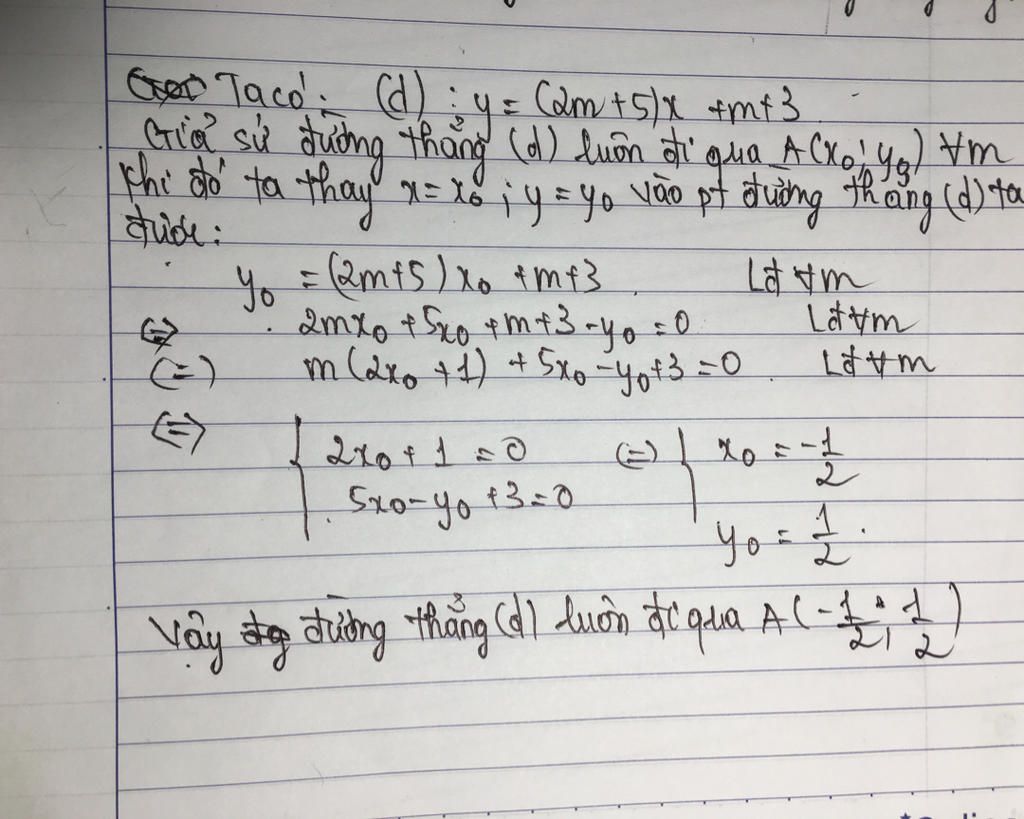 Ta có: (d) : y = (2m+5)x + m+3
Giả sử đường thẳng (d) luôn đi qua A(x₀; y₀) ∀m
Khi đó ta thay x = x₀ ; y = y₀ vào pt đường thẳng (d) ta
được:
y₀ = (2m+5) x₀ + m+3 Lđ ∀m
⇔ 2mx₀ + 5x₀ + m+3 - y₀ = 0 Lđ ∀m
(=) m(2x₀ + 1) + 5x₀ - y₀ + 3 = 0 Lđ ∀m
⇔ { 2x₀ + 1 = 0 (=) { x₀ = -1/2
5x₀ - y₀ + 3 = 0
y₀ = 1/2.
Vậy đường thẳng (d) luôn đi qua A(-1/2; 1/2)